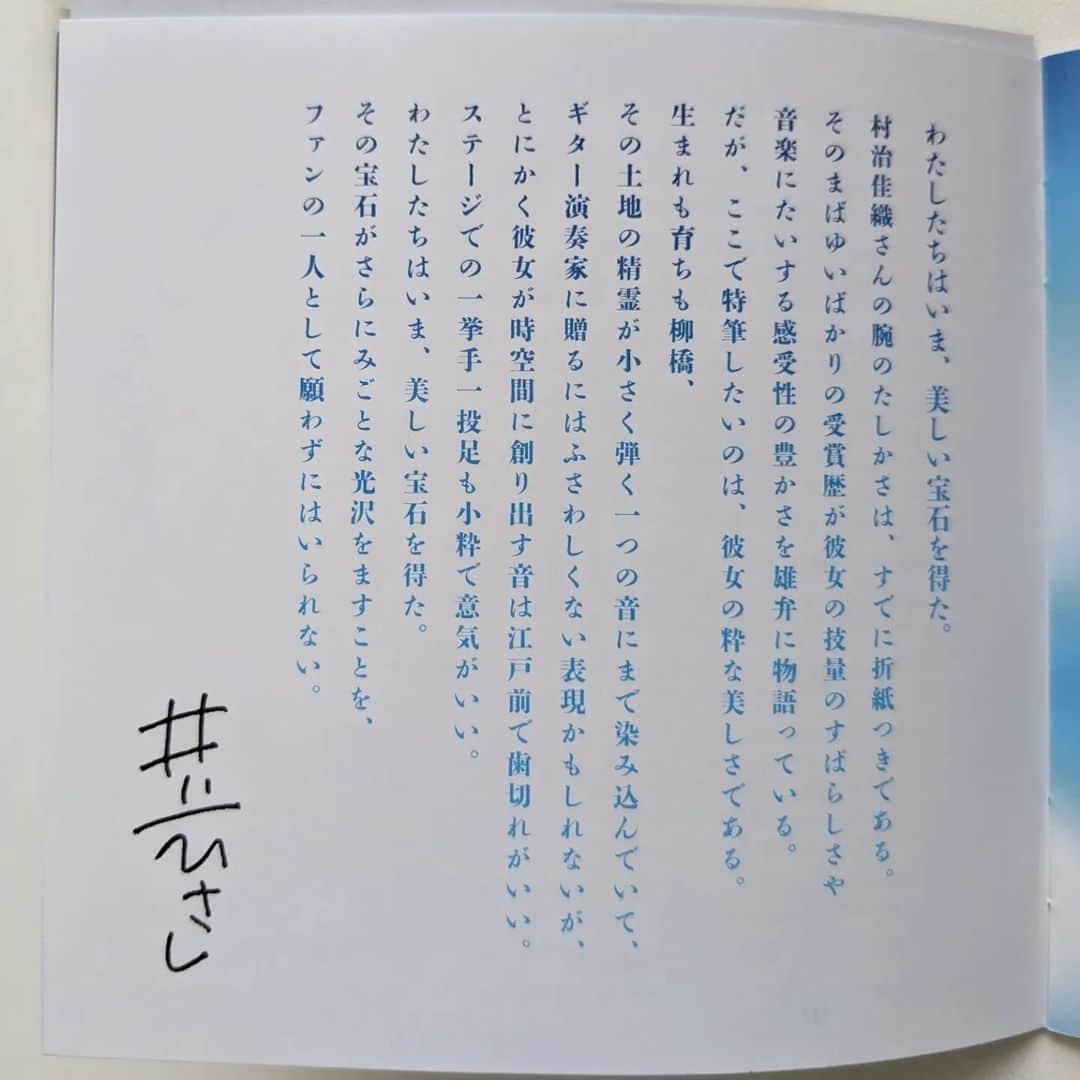 わたしたちはいま、美しい宝石を得た。
村治佳織さんの腕のたしかさは、すでに折紙つきである。
そのまばゆいばかりの受賞歴が彼女の技量のすばらしさや
音楽にたいする感受性の豊かさを雄弁に物語っている。
だが、ここで特筆したいのは、彼女の粋な美しさである。
生まれも育ちも柳橋、
その土地の精霊が小さく弾く一つの音にまで染み込んでいて、
ギター演奏家に贈るにはふさわしくない表現かもしれないが、
とにかく彼女が時空間に創り出す音は江戸前で歯切れがいい。
ステージでの一挙手一投足も小粋で意気がいい。
わたしたちはいま、美しい宝石を得た。
その宝石がさらにみごとな光沢をますことを、
ファンの一人として願わずにはいられない。
井上ひさし